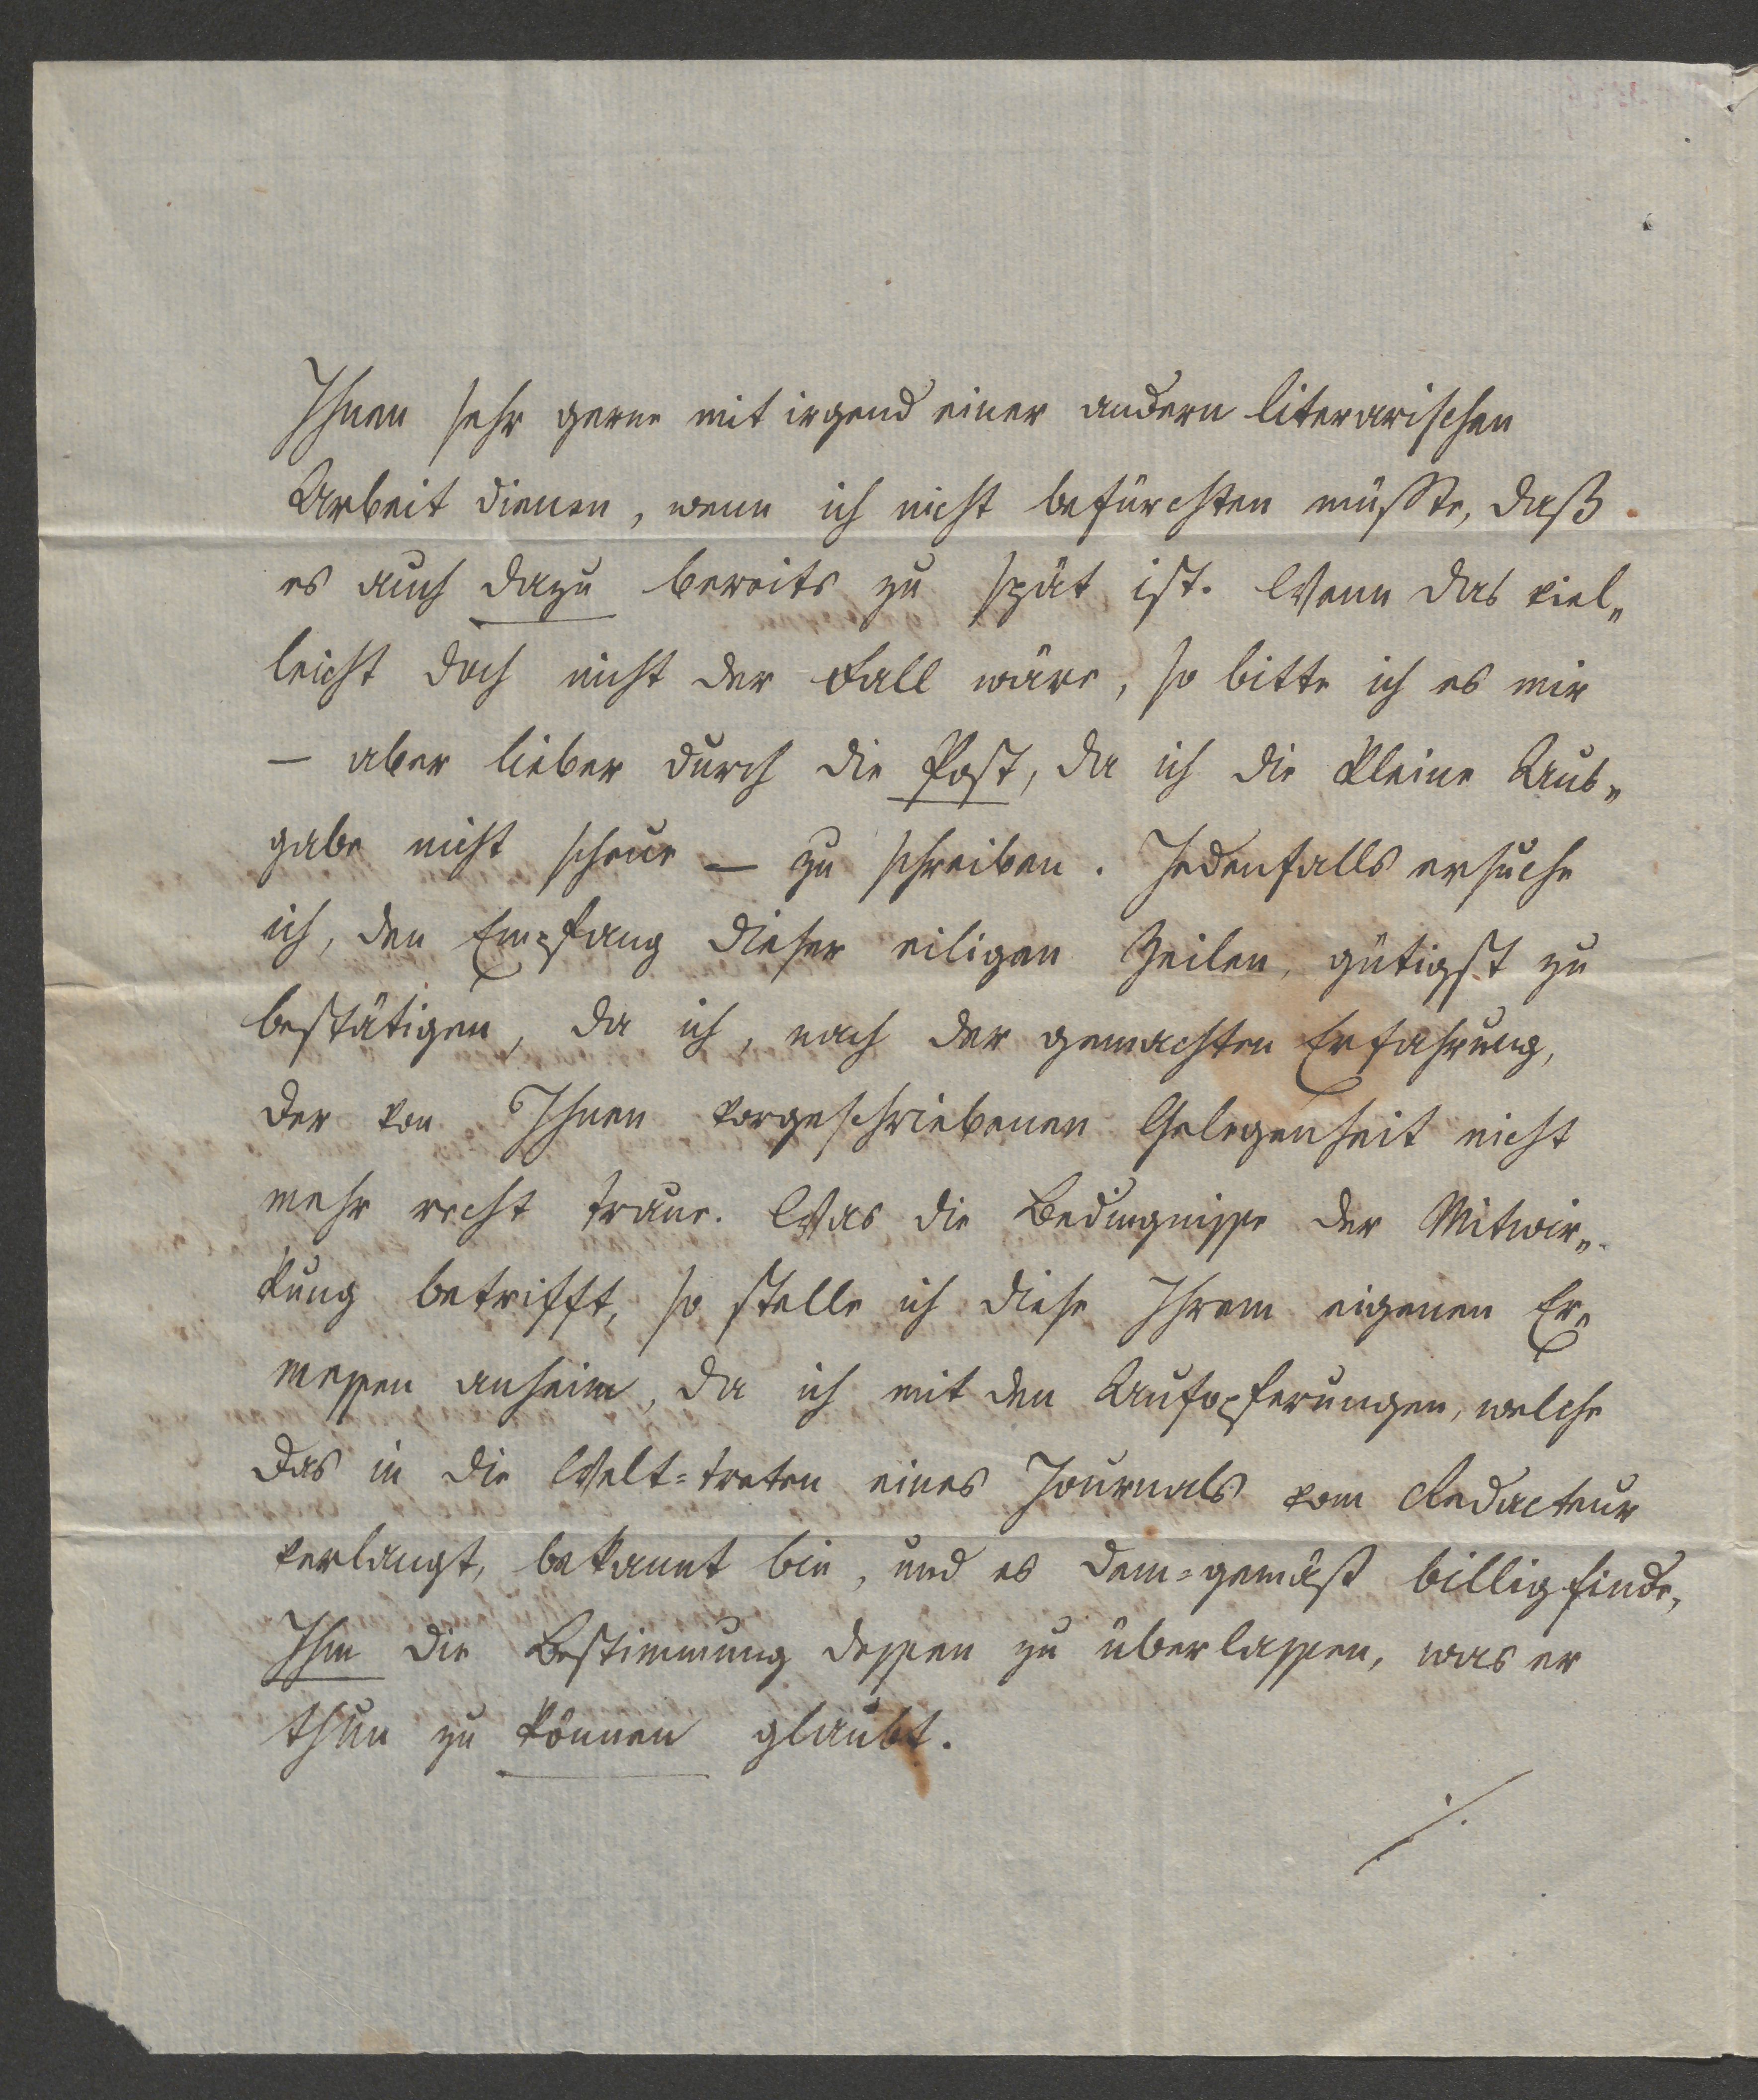 Ihnen sehr gerne mit irgend einer andern literarischen
Arbeit dienen, wenn ich nicht befürchten müßte, daß
es auch dazu bereits zu spät ist. Wenn das viel„
leicht doch nicht der Fall wäre, so bitte ich es mir
— aber lieber durch die Post, da ich die kleine Aus„
gabe nicht scheue — zu schreiben. Jedenfalls ersuche
ich, den Empfang dieser eiligen Zeilen, gütigst zu
bestätigen, da ich, nach der gemachten Erfahrung,
der von Ihnen vorgeschriebenen Gelegenheit nicht
mehr recht traue. Was die Bedingnisse der Mitwir„
kung betrifft, so stelle ich diese Ihrem eigenen Er„
messen anheim, da ich mit den Aufopferungen, welche
das in die Welt=treten eines Journals vom Redacteur
verlangt, bekannt bin, und es dem=gemäß billig finde,
Ihm die Bestimmung dessen zu überlassen, was er
thun zu können glaubt.
./.